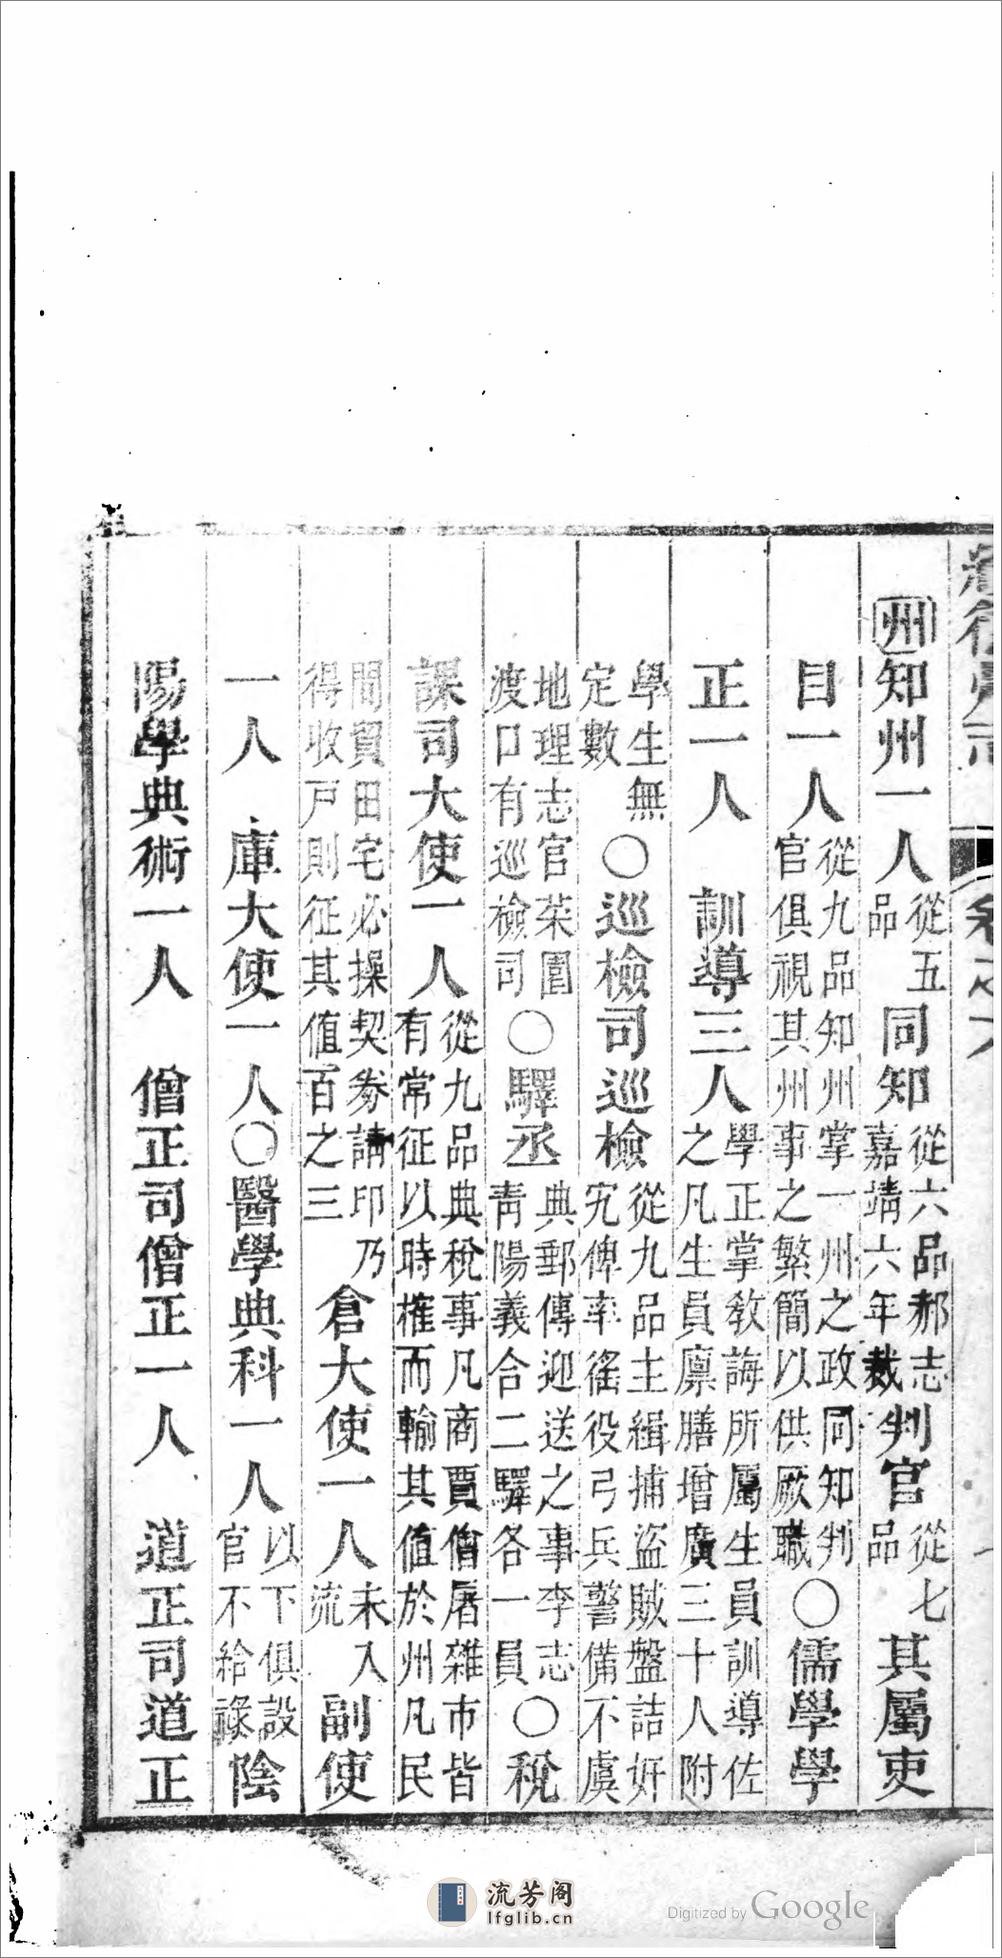 州知州一人從五品同知從六品郝志嘉靖六年裁判官從七品其屬吏
目一人從九品知州掌一州之政同知判官俱視其州事之繁簡以供厥職〇儒學學
正一人 訓導三人學正掌敎誨所屬生員訓導佐之凡生員廩膳增廣三十人附
學生無定數〇巡檢司巡檢從九品主緝捕盜賊盤詰奸宄俾率徭役弓兵警備不虞
地理志官菜園渡口有巡檢司〇驛丞典郵傳迎送之事李志靑陽義合二驛各一員〇稅
課司大使一人從九品典稅事凡商賈儈屠雜市皆有常征以時榷而輸其值於州凡民
間貿田宅必操契劵請印乃得收戸則征其值百之三 倉大使一人未入流 副使
一人 庫大使一人〇醫學典科一人以下俱設官不給祿陰
陽學典術一人 僧正司僧正一人 道正司道正
流芳阁
lfglib.cn
Digitized by Google